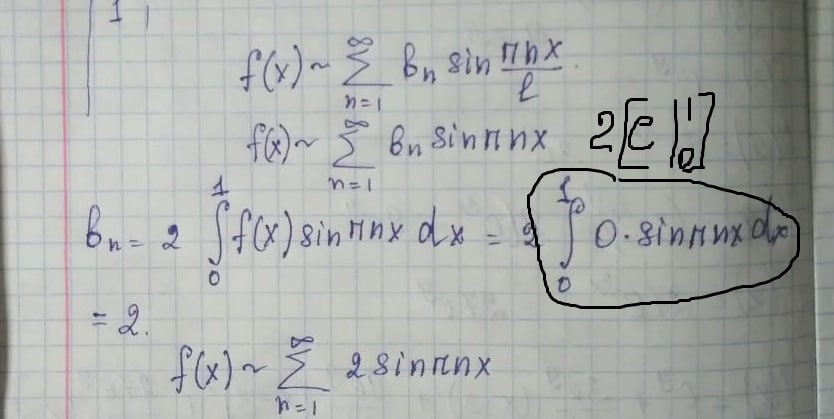 1
f(x) ~ ∑_{n=1}^{∞} bₙ sin πnx/l
f(x) ~ ∑_{n=1}^{∞} bₙ sin πnx 2[C |₀¹]
bₙ = 2 ∫₀¹ f(x) sin πnx dx = 2 ∫₀¹ 0 · sin πnx dx
= 2.
f(x) ~ ∑_{n=1}^{∞} 2 sin πnx